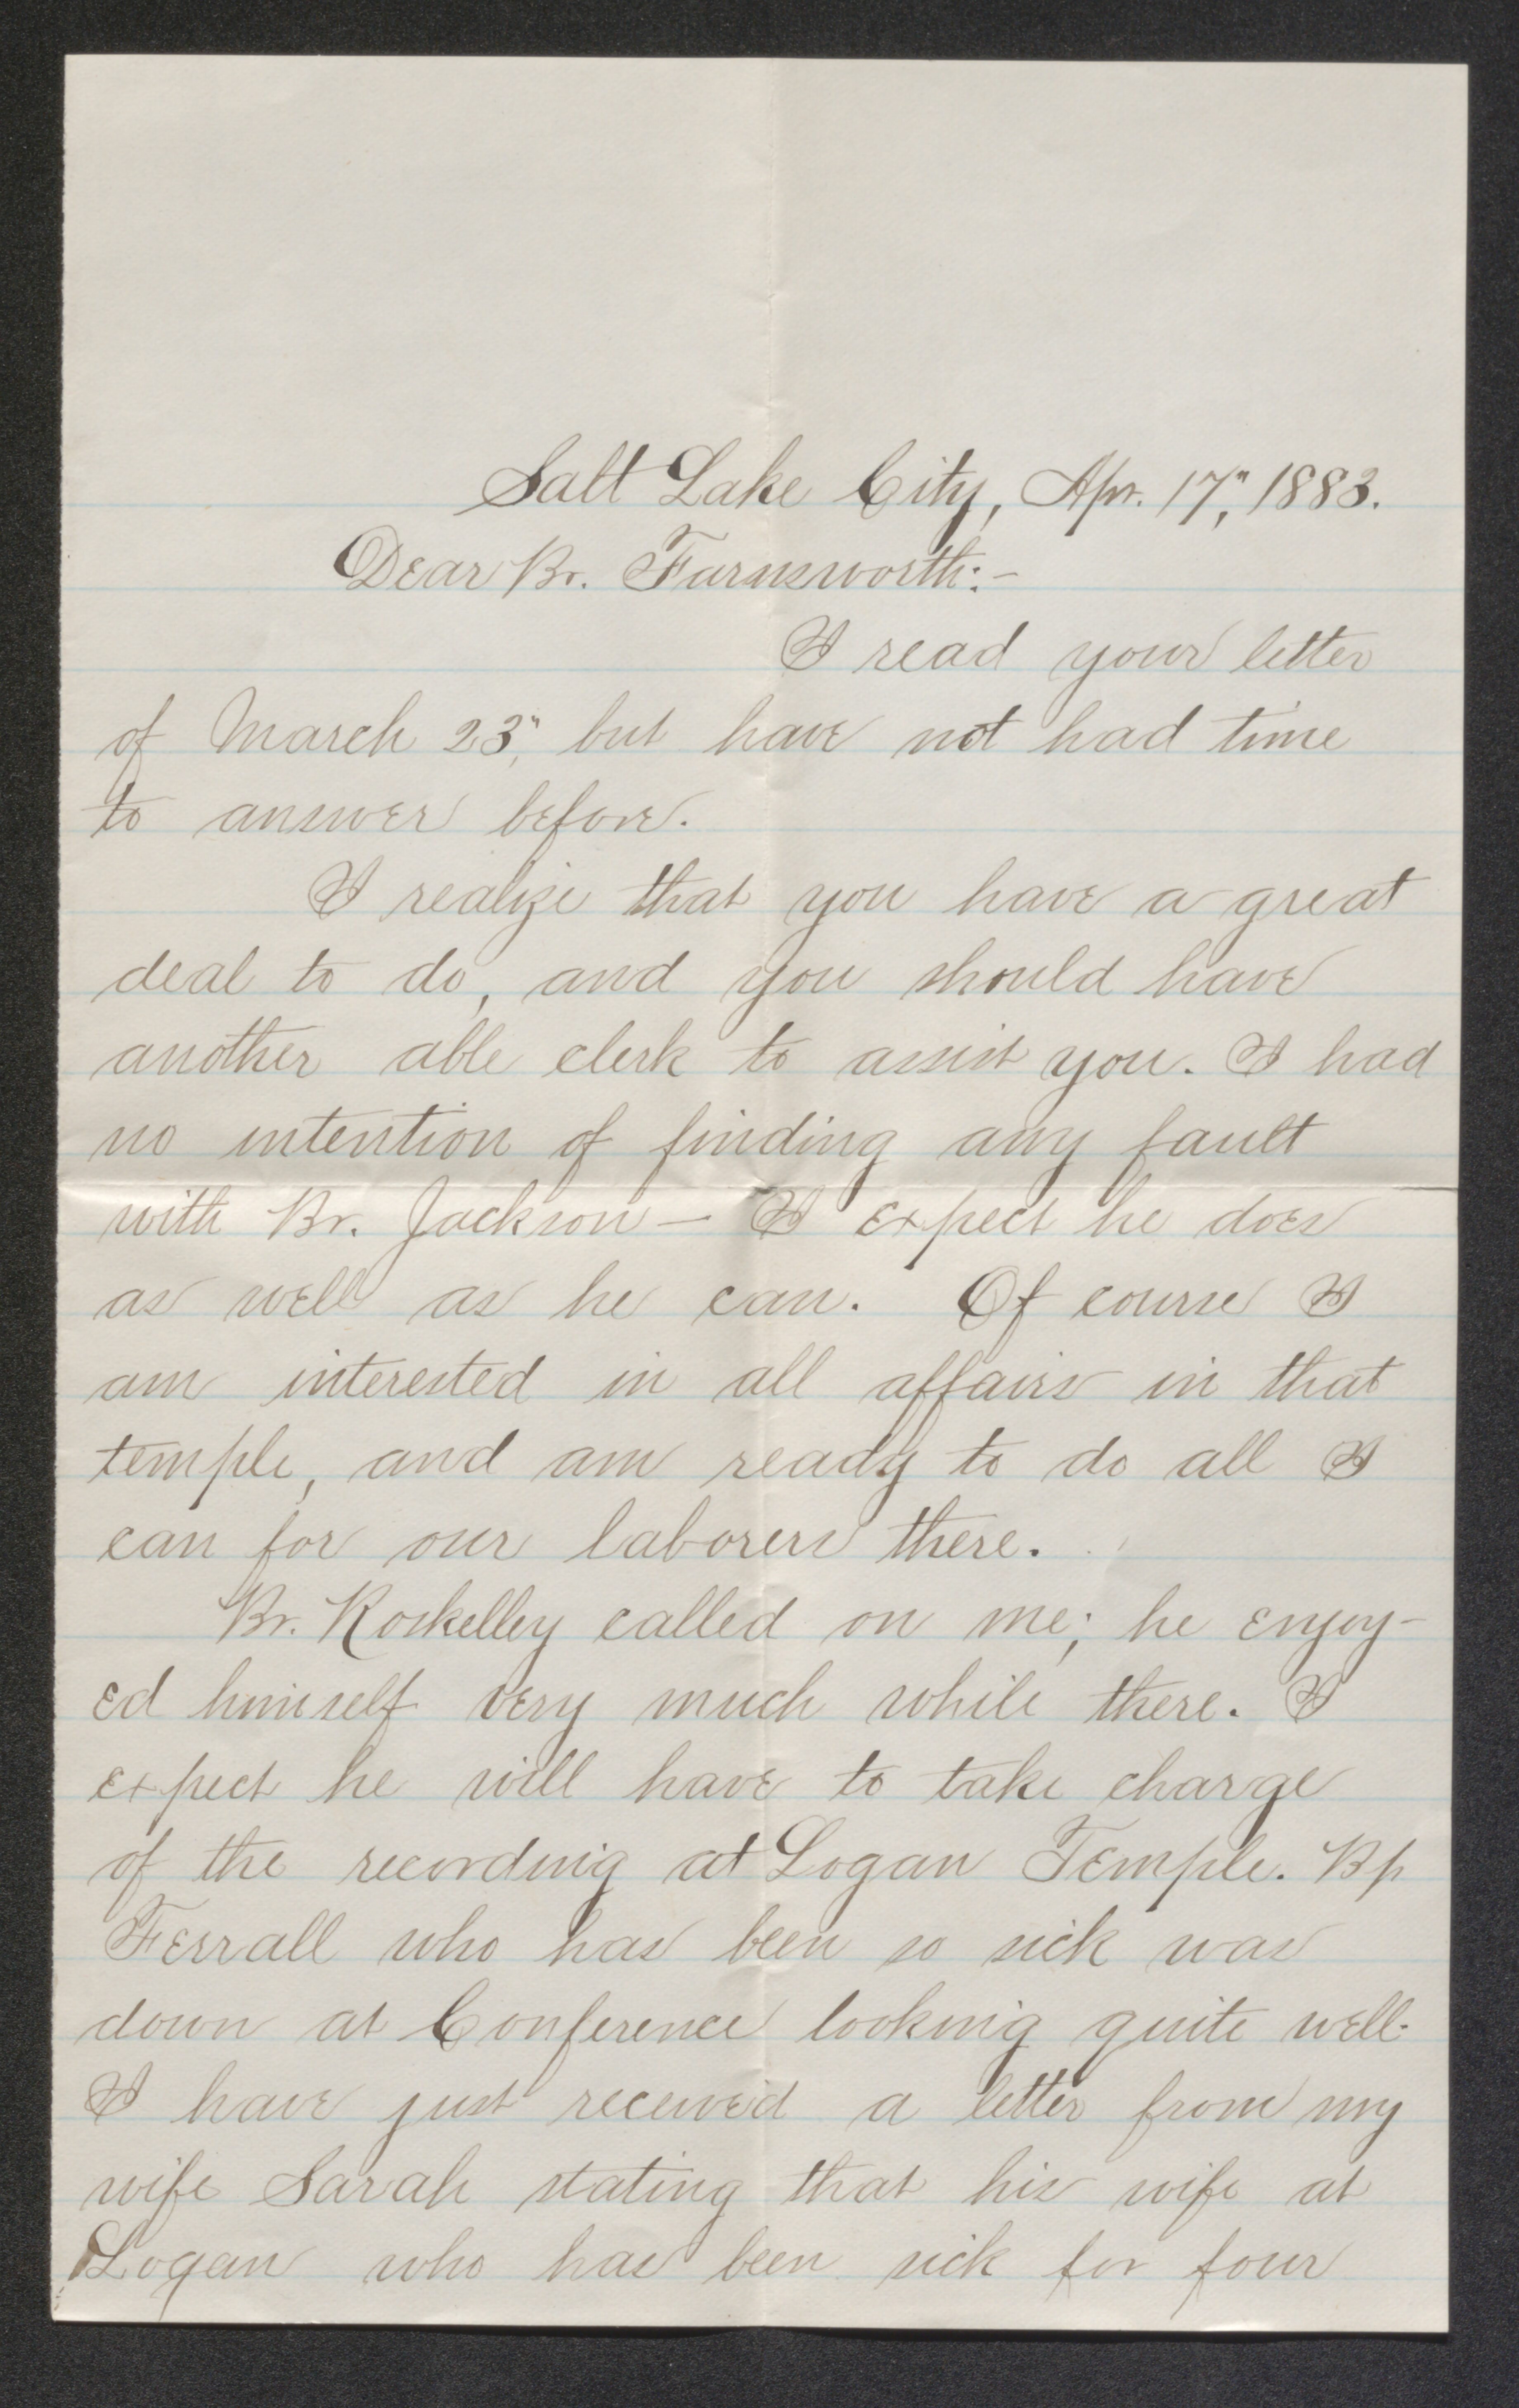 Salt Lake City, Apr. 17", 1883.
Dear Br. Farnsworth:-
I read your letter
of March 23", but have not had time
to answer before.
I realize that you have a great
deal to do, and you should have
another able clerk to assist you. I had
no intention of finding any fault
with Br. Jackson — I expect he does
as well as he can. Of course I
am interested in all affairs in that
temple, and am ready to do all I
can for our laborers there.
Br. Roskelley called on me; he enjoy-
ed himself very much while there. I
expect he will have to take charge
of the recording at Logan Temple. Bp
Ferrall who has been so sick was
down at Conference looking quite well.
I have just received a letter from my
wife Sarah stating that his wife at
Logan who has been sick for four